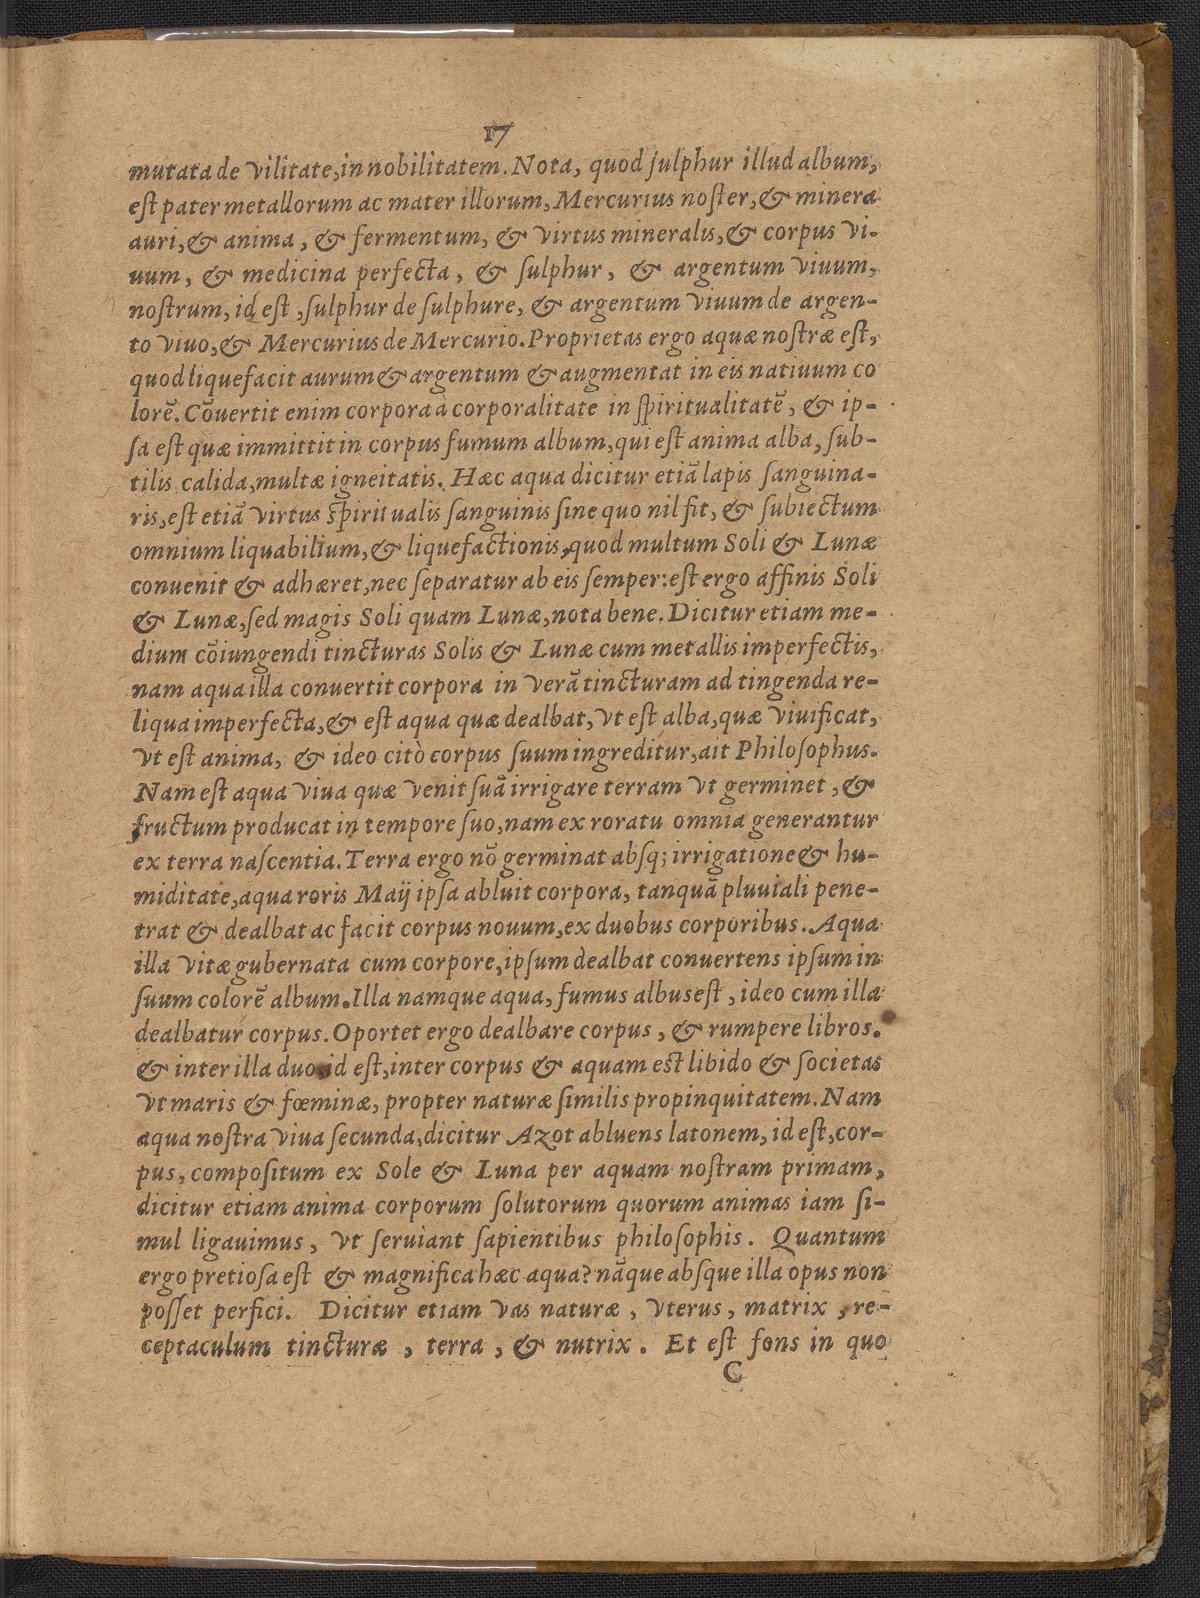 17
mutata de vilitate, in nobilitatem. Nota, quod ſulphur illud album,
eſt pater metallorum ac mater illorum, Mercurius noſter, & minera
auri, & anima, & fermentum, & virtus mineralis, & corpus vi-
uum, & medicina perfecta, & ſulphur, & argentum viuum,
noſtrum, id eſt, ſulphur de ſulphure, & argentum viuum de argen-
to viuo, & Mercurius de Mercurio. Proprietas ergo aquæ noſtræ eſt,
quod liquefacit aurum & argentum & augmentat in eis natiuum co
lorē. Cōuertit enim corpora a corporalitate in ſpiritualitatē, & ip-
ſa eſt quæ immittit in corpus fumum album, qui eſt anima alba, ſub-
tilis calida, multæ igneitatis. Hæc aqua dicitur etiā lapis ſanguina-
ris, eſt etiā virtus ſpiritualis ſanguinis ſine quo nil fit, & ſubiectum
omnium liquabilium, & liquefactionis, quod multum Soli & Lunæ
conuenit & adhæret, nec ſeparatur ab eis ſemper: eſt ergo affinis Soli
& Lunæ, ſed magis Soli quam Lunæ, nota bene. Dicitur etiam me-
dium cōiungendi tincturas Solis & Lunæ cum metallis imperfectis,
nam aqua illa conuertit corpora in verā tincturam ad tingenda re-
liqua imperfecta, & eſt aqua quæ dealbat, vt eſt alba, quæ viuificat,
vt eſt anima, & ideo citò corpus ſuum ingreditur, ait Philoſophus.
Nam eſt aqua viua quæ venit ſuā irrigare terram vt germinet, &
fructum producat in tempore ſuo, nam ex roratu omnia generantur
ex terra naſcentia. Terra ergo nō germinat abſq; irrigatione & hu-
miditate, aqua roris Maij ipſa abluit corpora, tanquā pluuiali pene-
trat & dealbat ac facit corpus nouum, ex duobus corporibus. Aqua
illa vitæ gubernata cum corpore, ipſum dealbat conuertens ipſum in
ſuum colorē album. Illa namque aqua, fumus albus eſt, ideo cum illa
dealbatur corpus. Oportet ergo dealbare corpus, & rumpere libros.
& inter illa duo, id eſt, inter corpus & aquam eſt libido & ſocietas
vt maris & fœminæ, propter naturæ ſimilis propinquitatem. Nam
aqua noſtra viua ſecunda, dicitur Azot abluens latonem, id eſt, cor-
pus, compoſitum ex Sole & Luna per aquam noſtram primam,
dicitur etiam anima corporum ſolutorum quorum animas iam ſi-
mul ligauimus, vt ſeruiant ſapientibus philoſophis. Quantum
ergo pretioſa eſt & magnifica hæc aqua? nāque abſque illa opus non
poſſet perfici. Dicitur etiam vas naturæ, vterus, matrix, re-
ceptaculum tincturæ, terra, & nutrix. Et eſt fons in quo
C